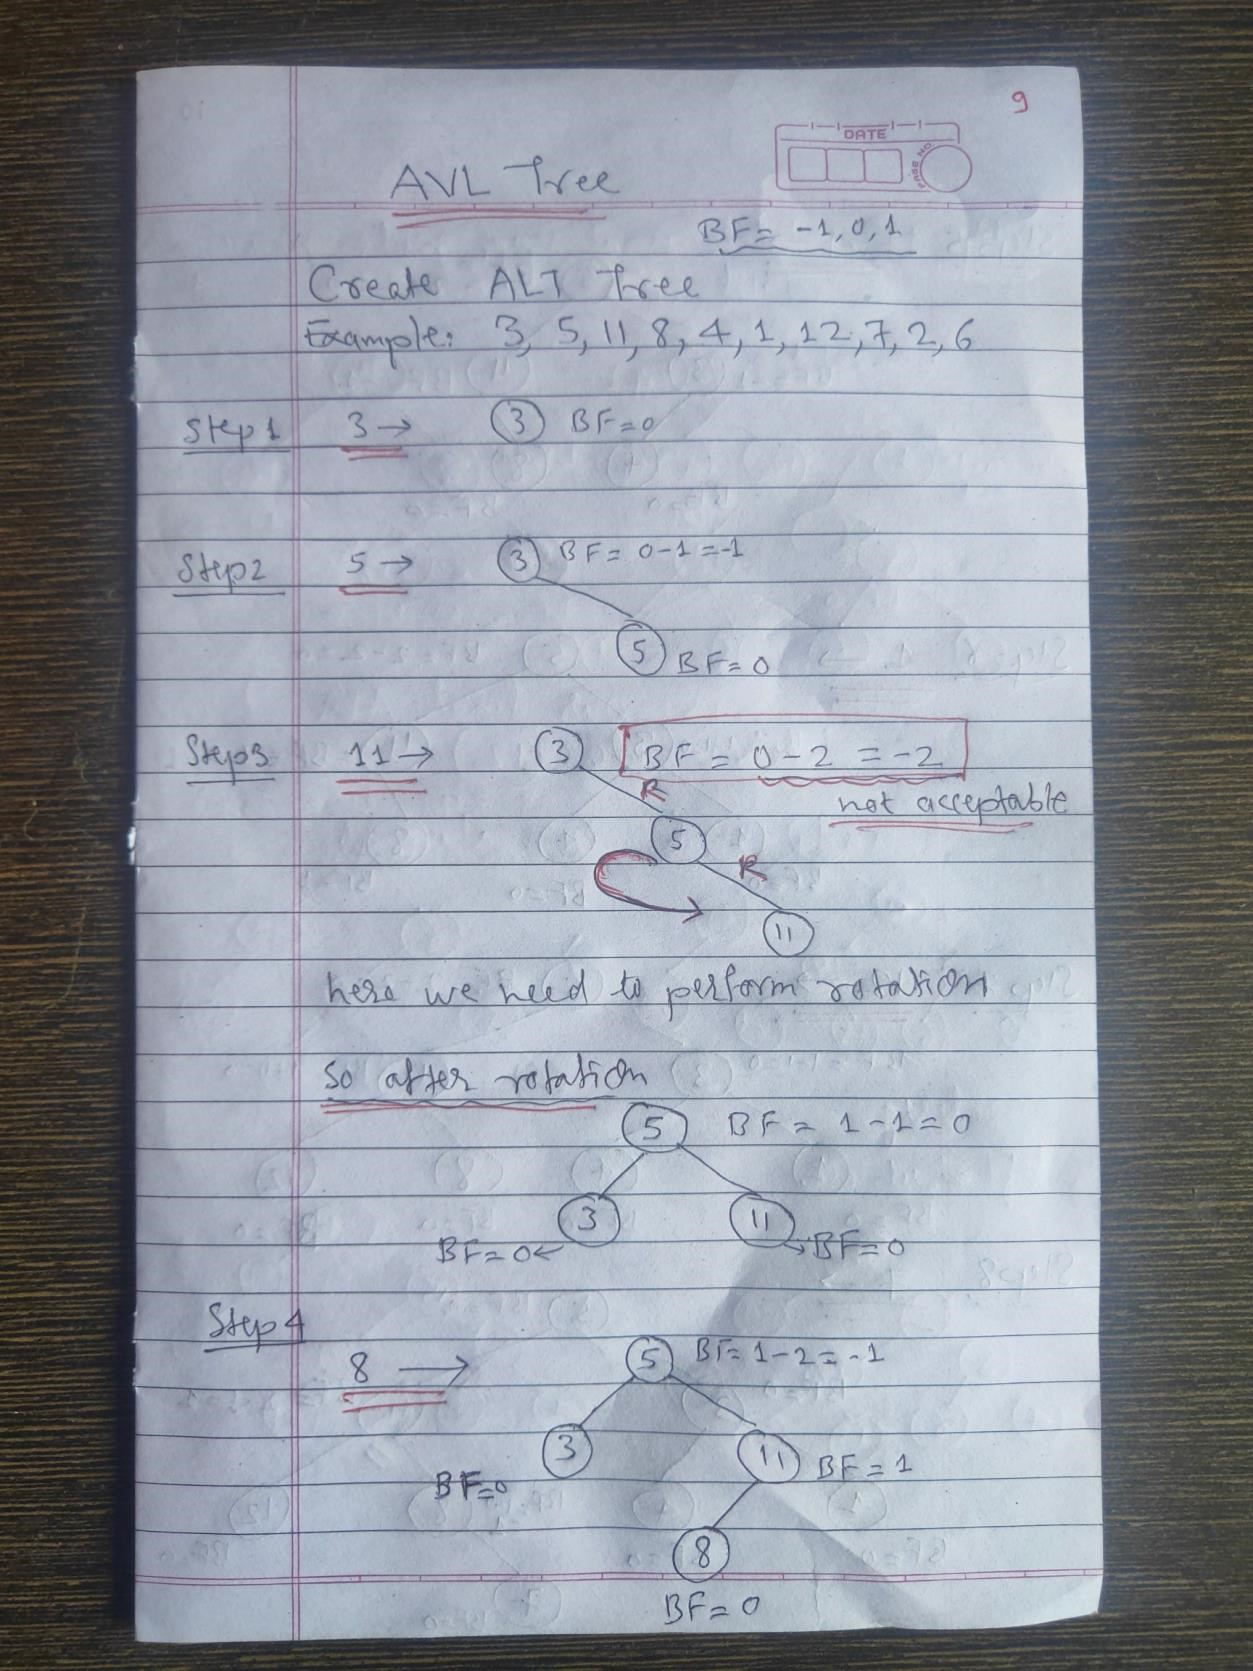 9
DATE
PAGE NO.
AVL Tree
BF = -1, 0, 1
Create ALT Tree
Example: 3, 5, 11, 8, 4, 1, 12, 7, 2, 6
Step 1 3 → 3 BF = 0
Step 2 5 → 3 BF = 0-1 = -1
5 BF = 0
Step 3 11 → 3 BF = 0-2 = -2
R not acceptable
5
R
11
here we need to perform rotation
So after rotation
5 BF = 1-1 = 0
3 11
BF = 0 ← → BF = 0
Step 4
8 → 5 BF = 1-2 = -1
3 11 BF = 1
BF = 0
8
BF = 0